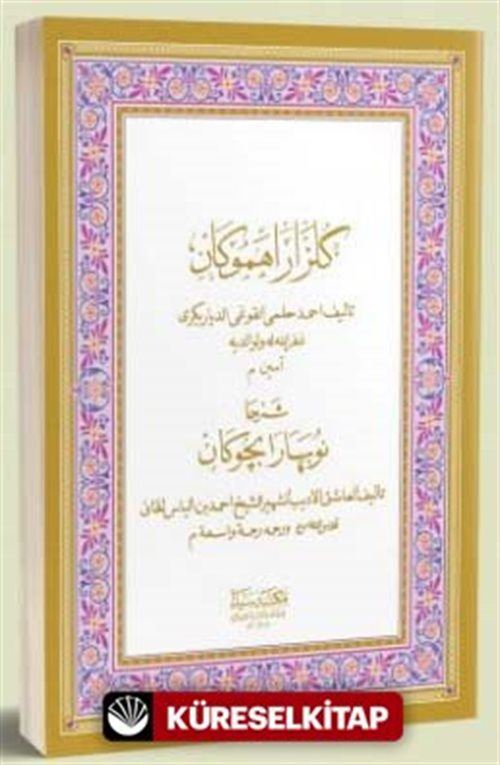 گلزارا هموكان
تأليف احمد حلمى القوغى الدياربكرى
غفر الله له ولوالديه
آمين م
شرحا
نوبهارا بچوكان
تأليف العاشق الاديب الشهير الشيخ احمد بن الياس الخانى
قدس سره ورحمه رحمة واسعة م
مكتبة سيدا
KÜRESELKİTAP